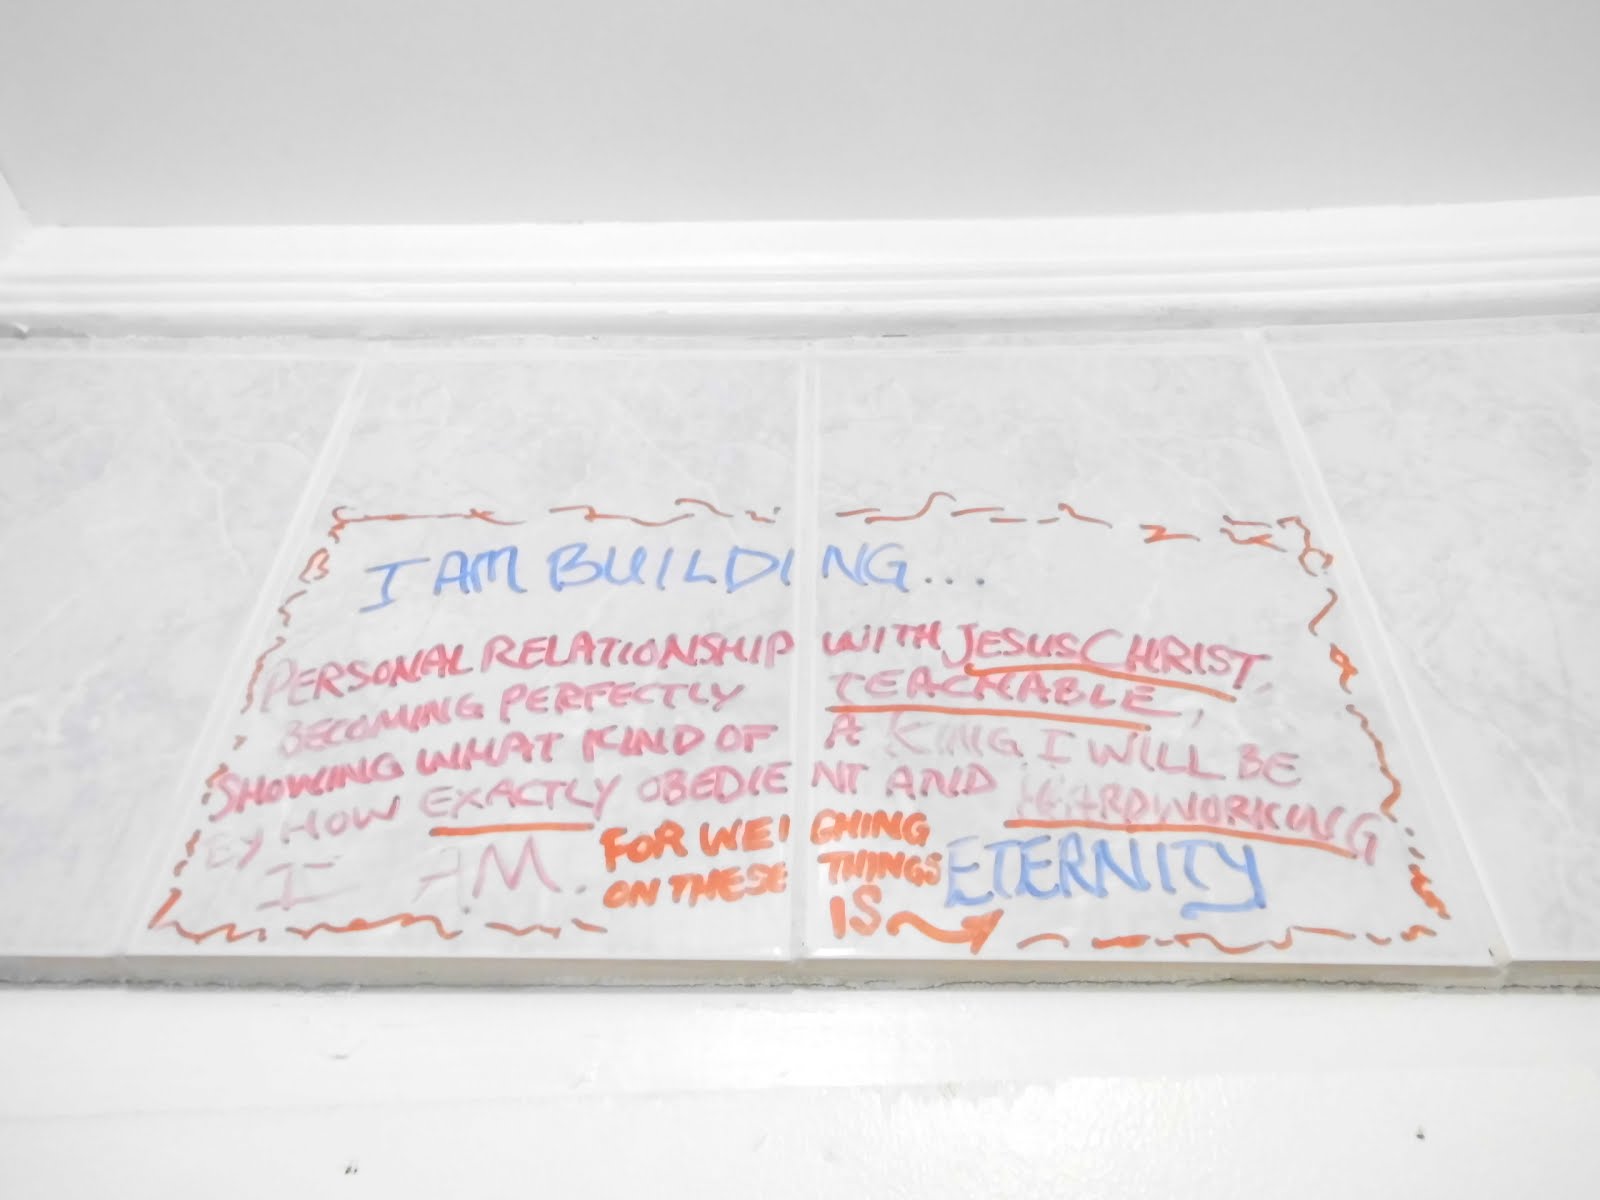 I AM BUILDING...
PERSONAL RELATIONSHIP WITH JESUS CHRIST,
BECOMING PERFECTLY TEACHABLE,
SHOWING WHAT KIND OF A KING I WILL BE
BY HOW EXACTLY OBEDIENT AND HARDWORKING
I AM.
FOR WEIGHING
ON THESE THINGS
IS
ETERNITY